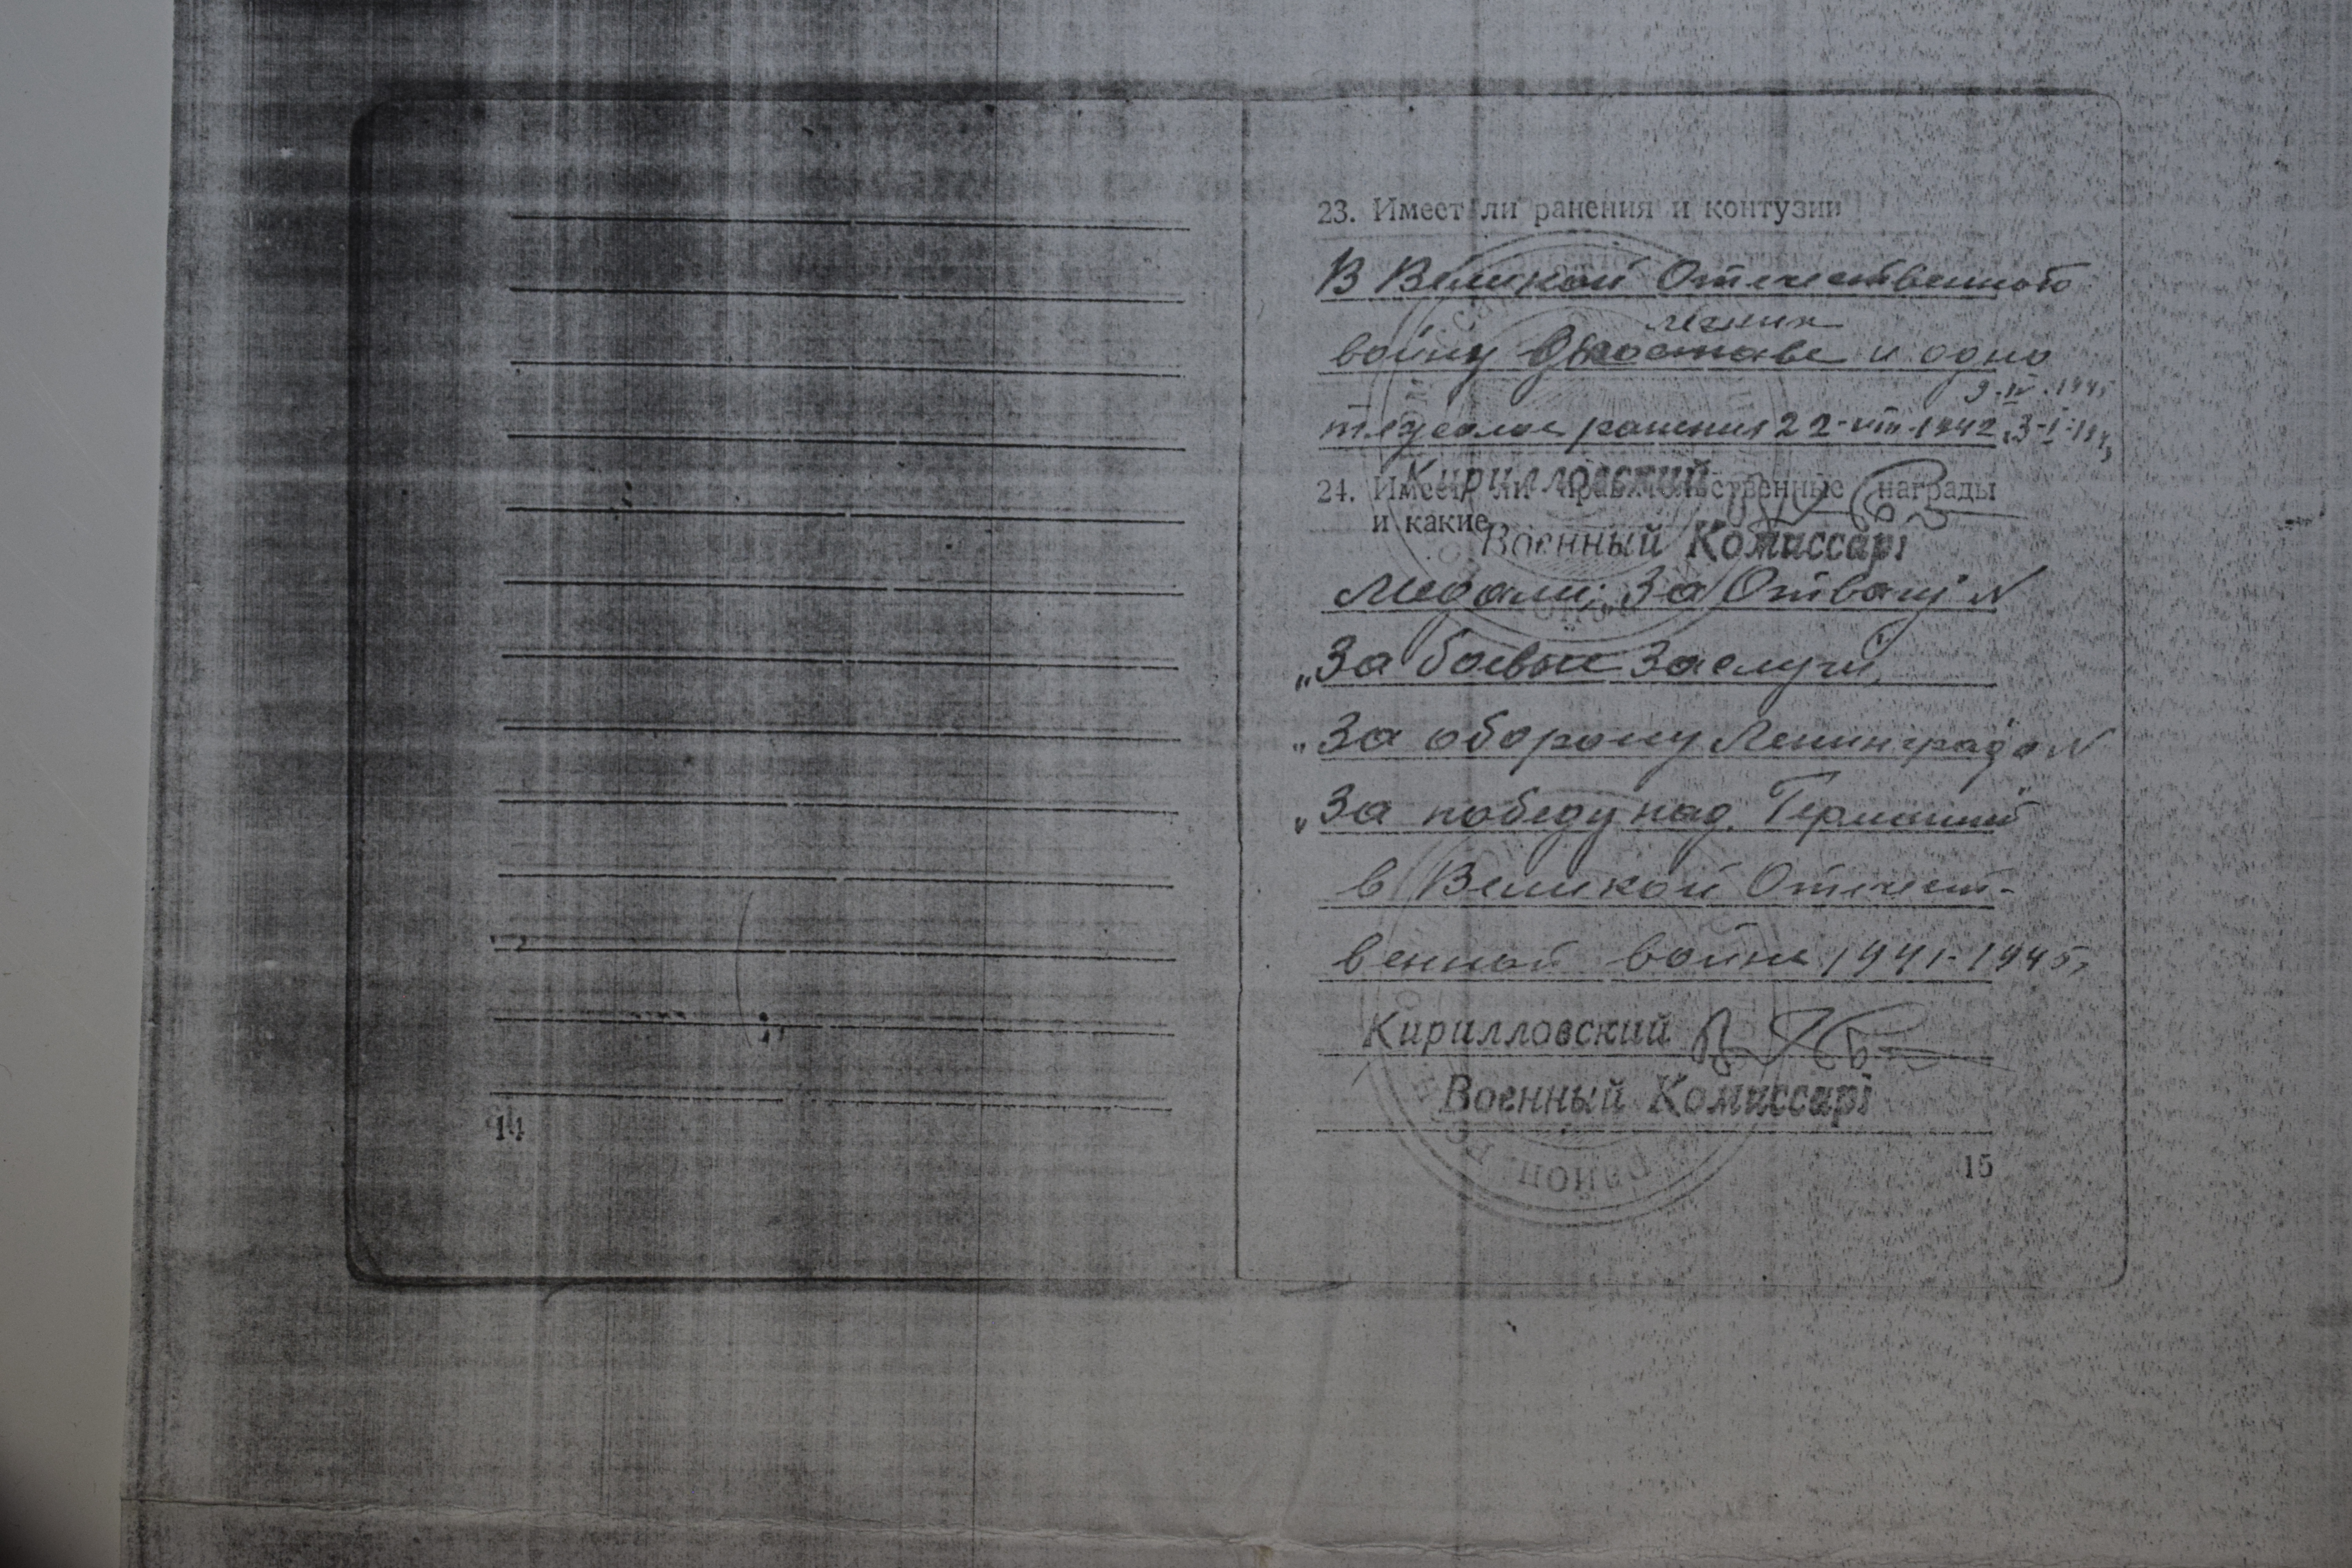 23. Имеет ли ранения и контузии
В Великой Отечественной
войну и одно
тяжелое ранения 22-VIII-1942
9-IV-1945
Кирилловский
24. Имеет ли правительственные награды
и какие
Военный Комиссарі
Медали: „За Отвагу"
„За боевые заслуги"
„За оборону Ленинграда"
„За победу над Германией"
в Великой Отечест-
венной войне 1941-1945г
Кирилловский
Военный Комиссарі
район.
14
15